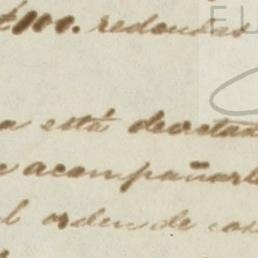 £100. redondas
EU
a está decretad
e acompañarl
l orden de cos